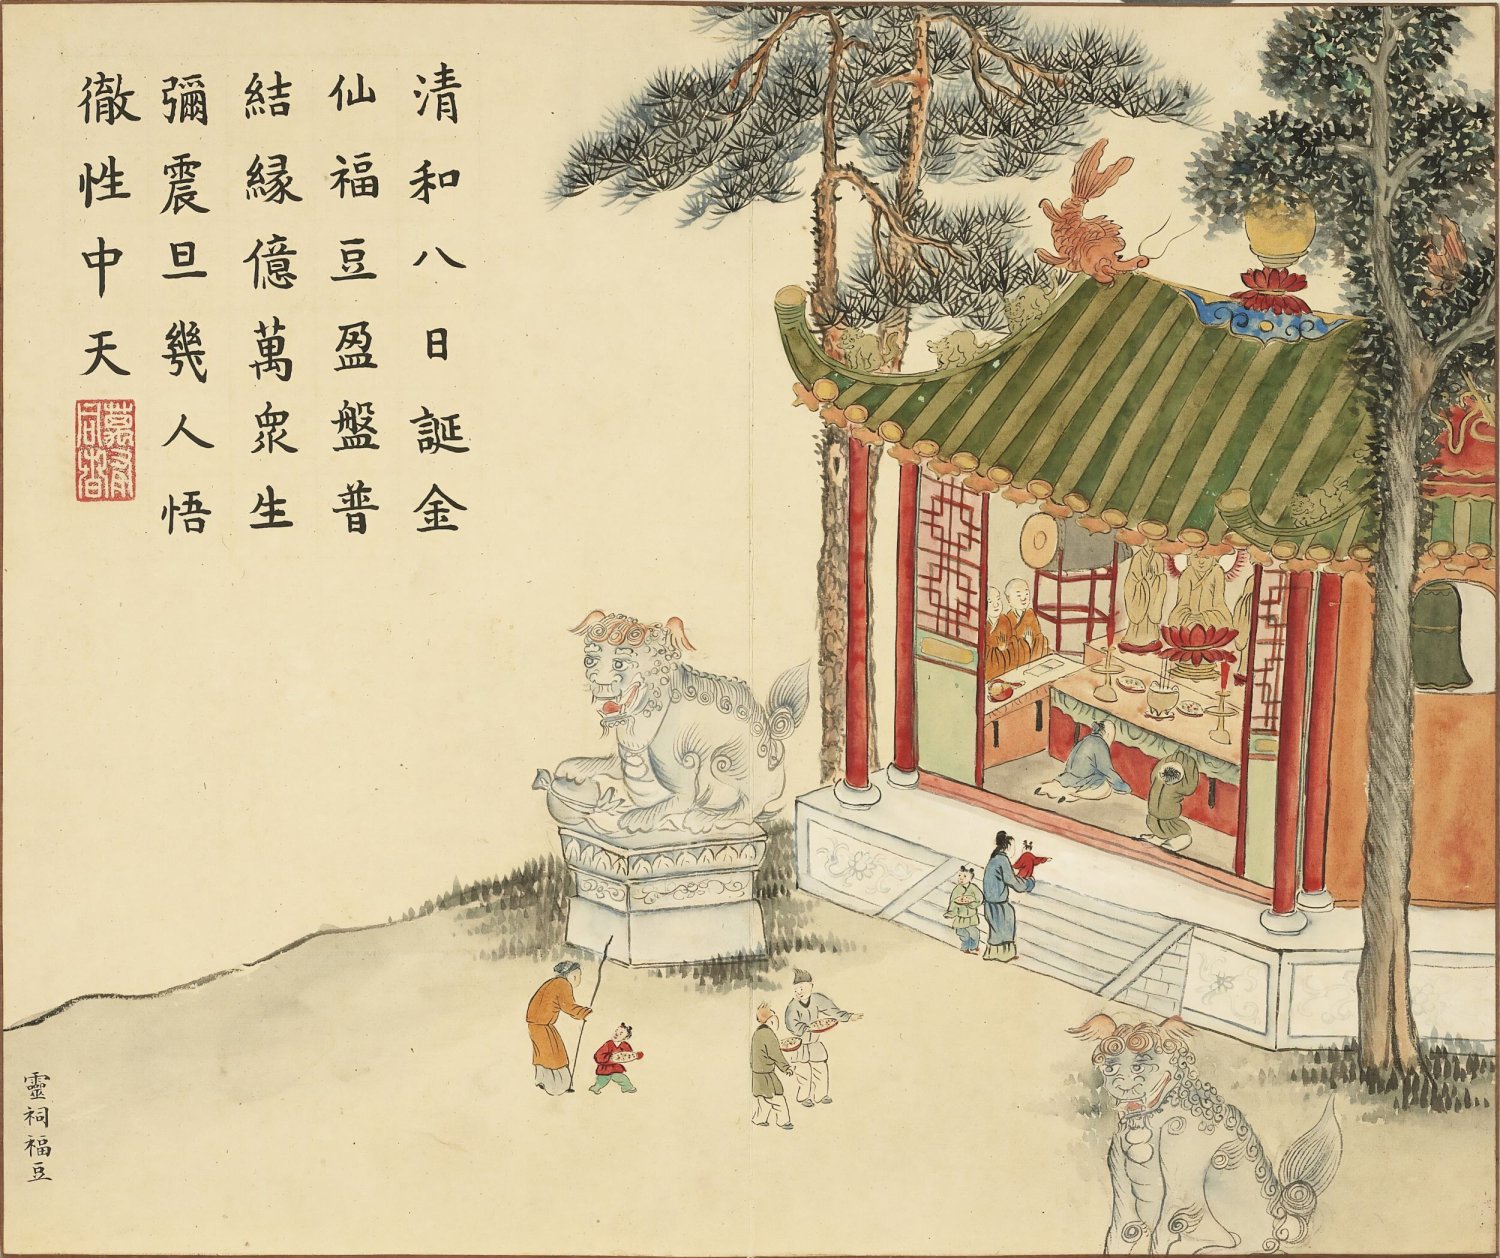 清和八日誕金
仙福豆盈盤普
結緣億萬衆生
彌震旦幾人悟
徹性中天
靈祠福豆